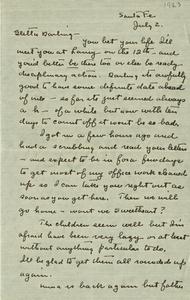 1923
Santa Fe
July 2.
Stella Darling:
You bet your life I'll
meet you at Lamy on the 12th - and
you'd better be there too or else be ready
disciplinary action. Darling its awfully
good to have some definite date ahead
of me - so far its just seemed always
a h- of a while but now with ten
days to count off it wont be so bad.
I got in a few hours ago and
had a scrubbing and read your letters
- and expect to be in for a few days
to get most of my office work cleaned
up so I can take you right out as
soon as you get here. Then we will
go home - wont we sweetheart?
The children seem well but I'm
afraid have been very lazy or at best
without anything particular to do.
I'll be glad to get them all rounded up
again.
is back again but father